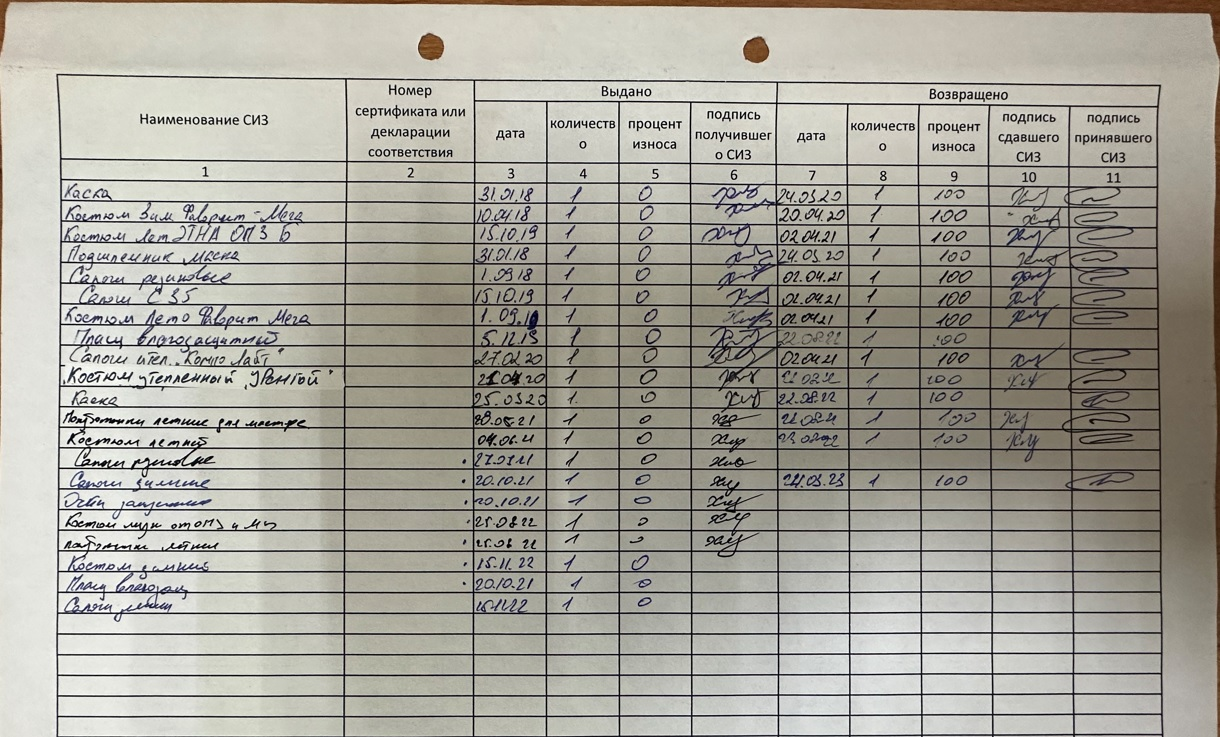 Наименование СИЗ Номер сертификата или декларации соответствия Выдано Возвращено
дата количество процент износа подпись получившего СИЗ дата количество процент износа подпись сдавшего СИЗ подпись принявшего СИЗ
1 2 3 4 5 6 7 8 9 10 11
Каска 31.01.18 1 0 24.03.20 1 100
Костюм Зим Фаворит-Мега 10.04.18 1 0 20.04.20 1 100
Костюм Лет ЭТНА ОПЗ Б 15.10.19 1 0 02.04.21 1 100
Подшлемник маска 31.01.18 1 0 24.03.20 1 100
Сапоги резиновые 1.09.18 1 0 02.04.21 1 100
Сапоги С 35 15.10.19 1 0 02.04.21 1 100
Костюм Лето Фаворит Мега 1.09.19 1 0 02.04.21 1 100
Плащ влагозащитный 5.12.19 1 0 22.08.22 1 100
Сапоги утеп. "Комфо Лайт" 27.02.20 1 0 02.04.21 1 100
Костюм утепленный "Уренгой" 20 1 0 1 100
Каска 25.03.20 1 0 22.08.22 1 100
летние для мастера 28.05.21 1 0 1 100
Костюм летний 04.06.21 1 0 1 100
Сапоги резиновые 1 0
Сапоги зимние 20.10.21 1 0 1 100
Очки 20.10.21 1 0
Костюм муж от ОПЗ и МВ 25.08.22 1 0
летние 22 1 0
Костюм зимний 15.11.22 1 0
Плащ влагозащ 20.10.21 1 0
Сапоги 1 0